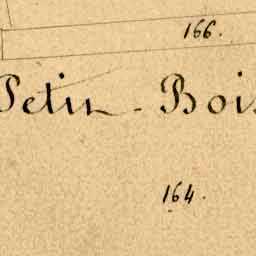 166.
Petit-Bois
164.